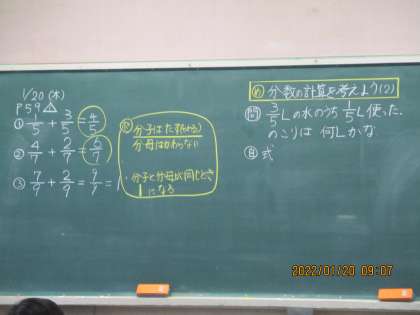 1/20 (木)
P59 △
① 1/5 + 3/5 = 4/5
② 4/7 + 2/7 = 6/7
③ 7/9 + 2/9 = 9/9 = 1
分子はたす
分母はかわらない
・分子と分母が同じとき
1になる
め 分数の計算を考えよう(2)
問 3/5Lの水のうち 1/5L使った。
のこりは 何Lかな
自 式
2022/01/20 09:07